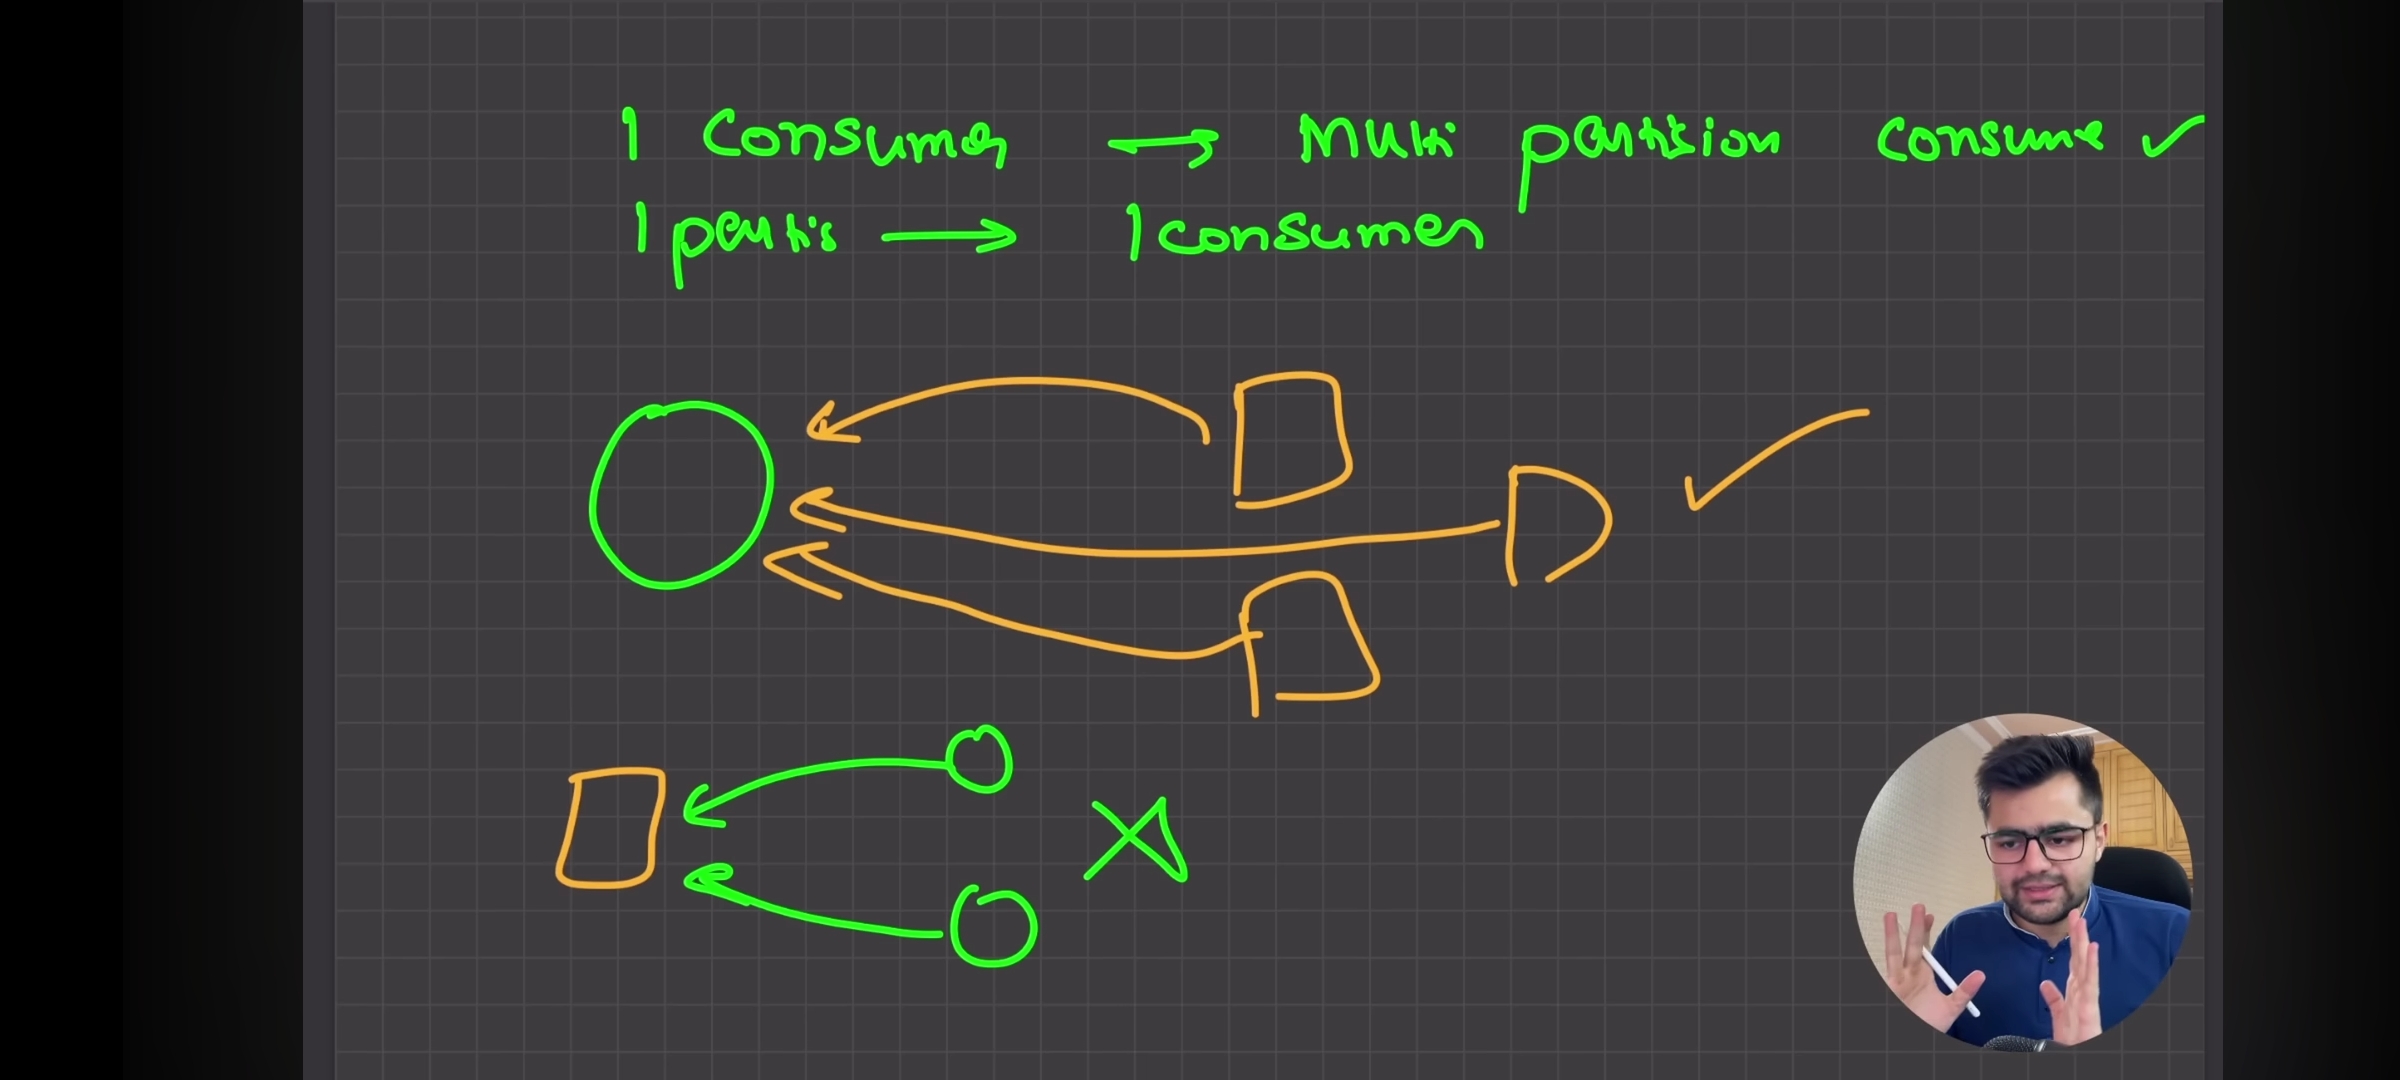 1 Consumer → Multi partision consume ✓
1 partis → 1 consumer